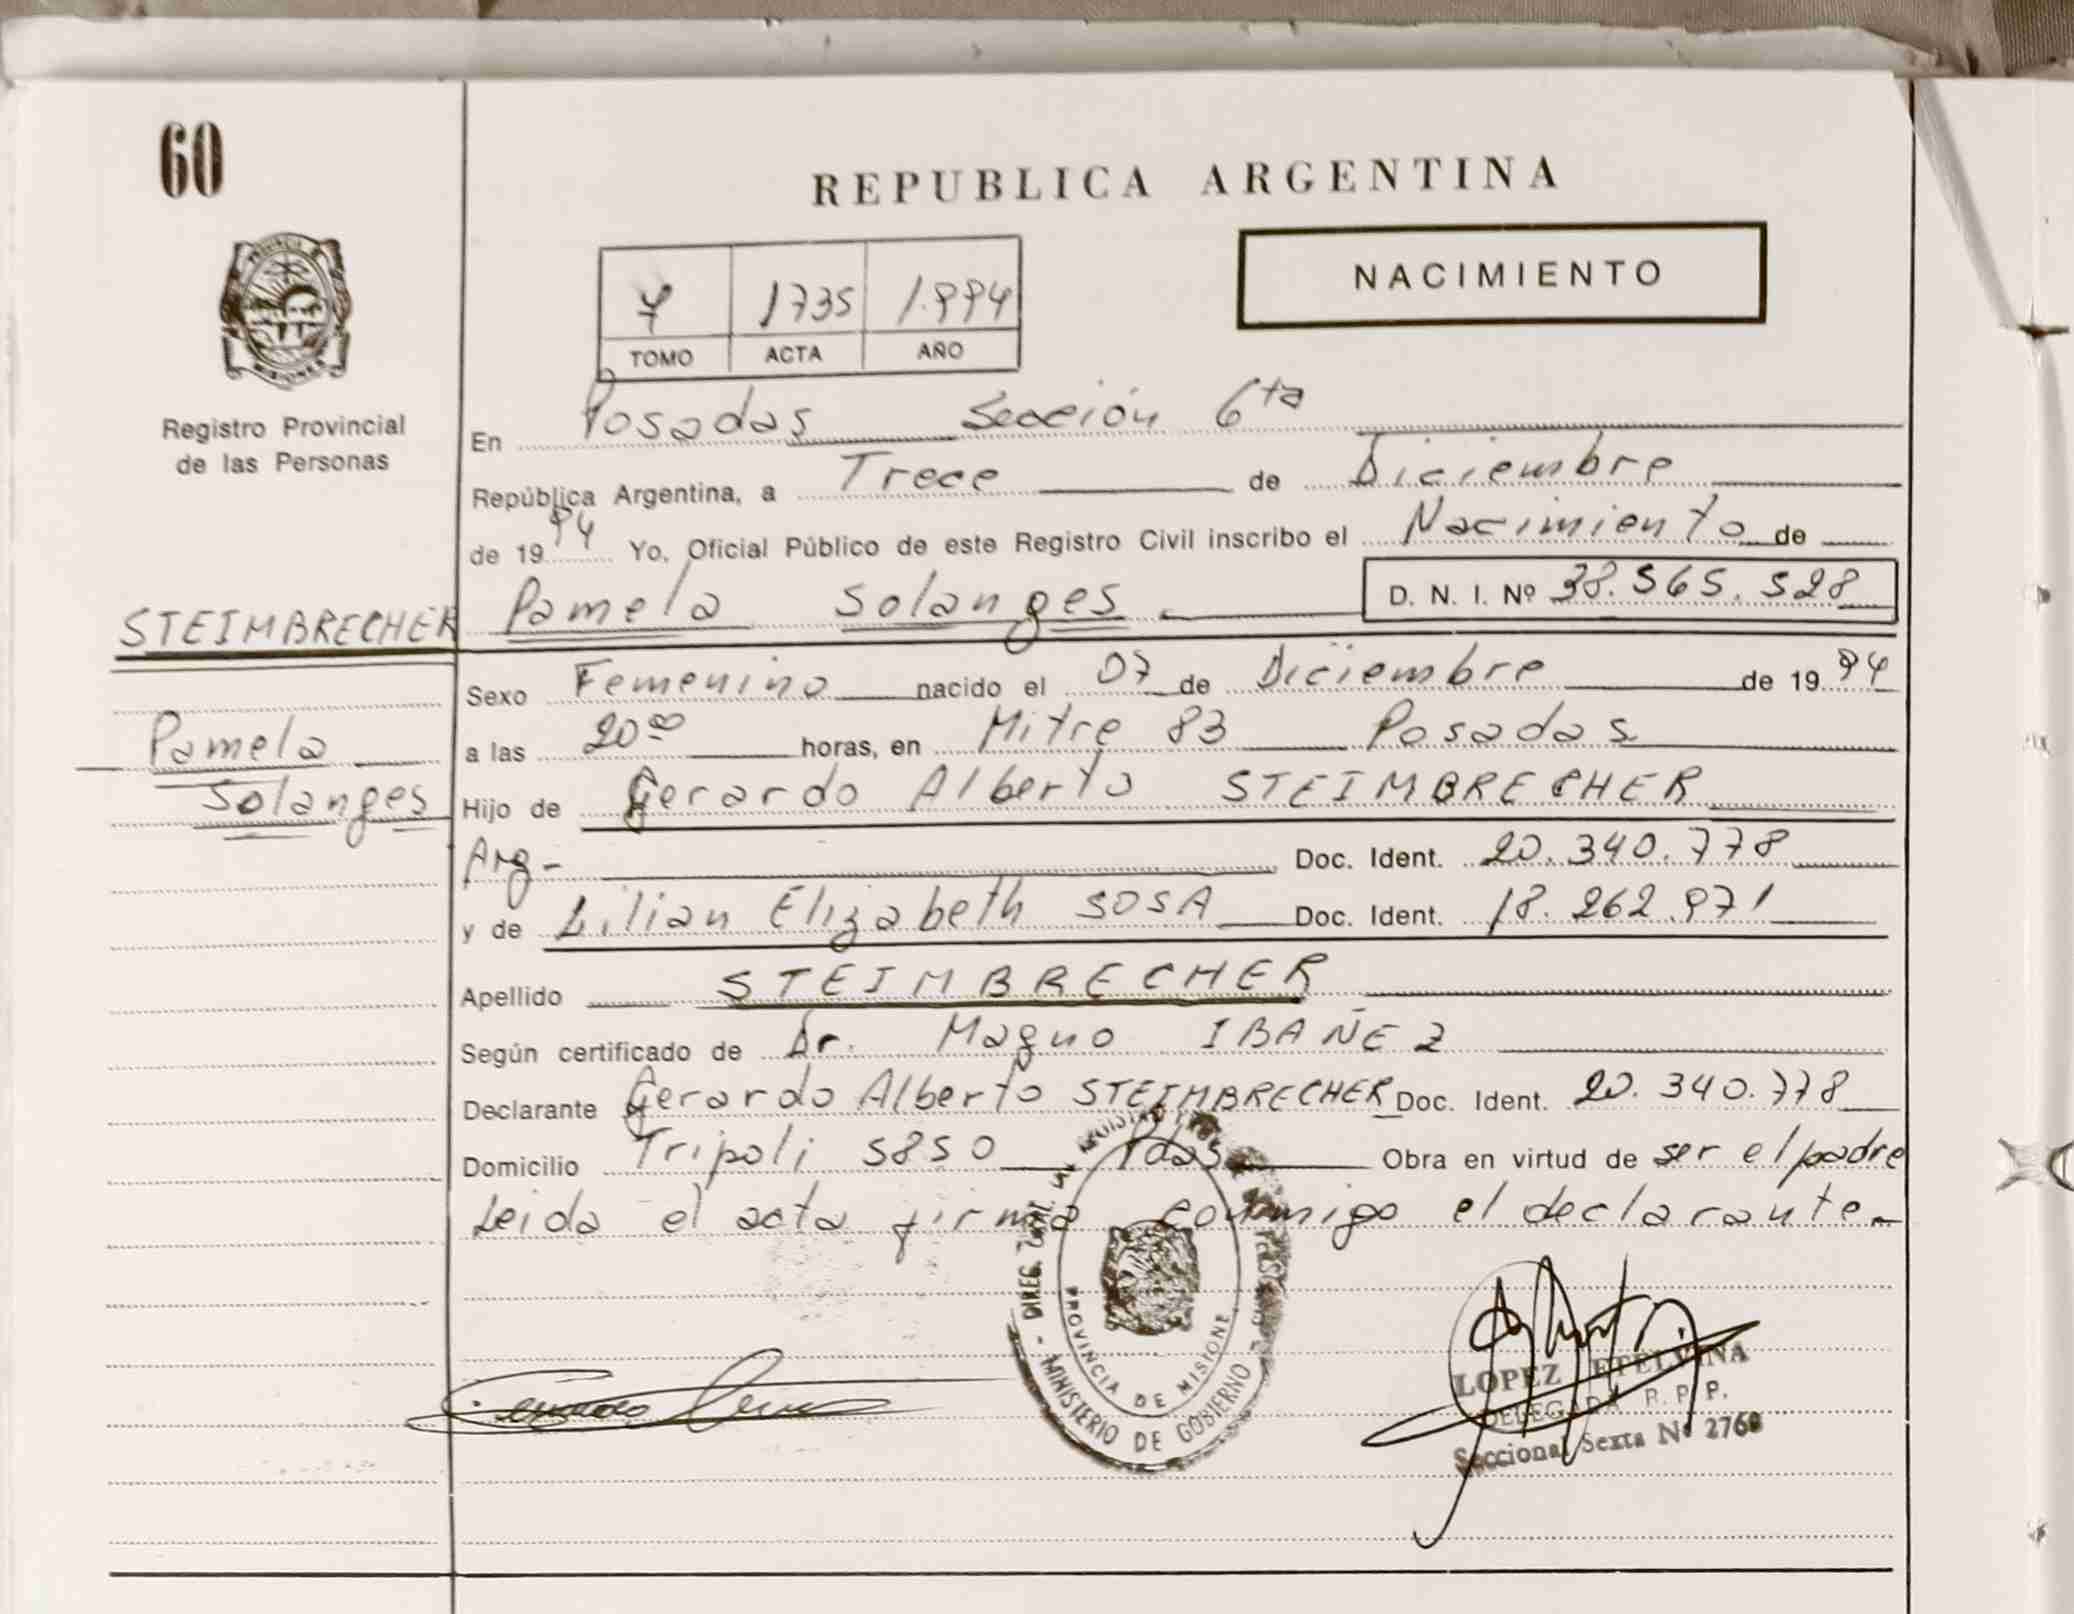 60
REPUBLICA ARGENTINA
NACIMIENTO
1735 1.994
TOMO ACTA AÑO
Registro Provincial
de las Personas
En Posadas Sección 6ta
República Argentina, a Trece de Diciembre
de 1994 Yo, Oficial Público de este Registro Civil inscribo el Nacimiento de
STEIMBRECHER Pamela Solanges D. N. I. Nº 38.565.528
Sexo Femenino nacido el 07 de Diciembre de 1994
Pamela
a las 20 00 horas, en Mitre 83 Posadas
Solanges
Hijo de Gerardo Alberto STEIMBRECHER
Arg- Doc. Ident. 20.340.778
y de Lilian Elizabeth SOSA Doc. Ident. 18.262.971
Apellido STEIMBRECHER
Según certificado de Dr. Magno IBAÑEZ
Declarante Gerardo Alberto STEIMBRECHER Doc. Ident. 20.340.778
Domicilio Tripoli 5850 Pdas Obra en virtud de ser el padre
Leida el acta firma conmigo el declarante-
PROVINCIA DE MISIONES
MINISTERIO DE GOBIERNO
LOPEZ ETELVINA
DELEGADA R. P. P.
Seccional Sexta Nº 2760